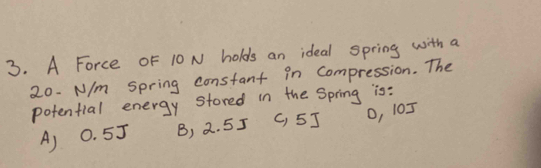 3. A Force OF 10 N holds an ideal spring with a
20. N/m spring constant in compression. The
potential energy stored in the Spring is:
A) 0.5J B) 2.5J C) 5J D) 10J